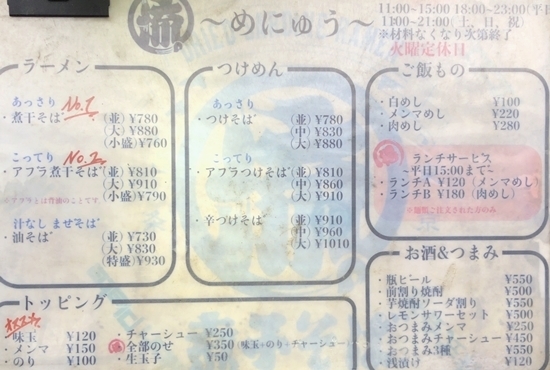 流
～めにゅう～
11:00~15:00 18:00~23:00(平日
11:00~21:00(土、日、祝)
※材料なくなり次第終了
火曜定休日
ラーメン
あっさり No.1
・煮干そば (並)¥780
(大)¥880
(小盛)¥760
こってり No.2
・アブラ煮干そば (並)¥810
(大)¥910
(小盛)¥790
※アブラとは背脂のことです
汁なし まぜそば
・油そば (並)¥730
(大)¥830
(特盛)¥930
つけめん
あっさり
・つけそば (並)¥780
(中)¥830
(大)¥880
こってり
・アブラつけそば (並)¥810
(中)¥860
(大)¥910
・辛つけそば (並)¥910
(中)¥960
(大)¥1010
ご飯もの
・白めし ¥100
・メンマめし ¥220
・肉めし ¥280
ランチサービス
~平日15:00まで~
・ランチA ¥120(メンマめし)
・ランチB ¥180(肉めし)
※麺類ご注文された方のみ
お酒&つまみ
・瓶ビール ¥550
・前割り焼酎 ¥500
・芋焼酎ソーダ割り ¥550
・レモンサワーセット ¥500
・おつまみメンマ ¥250
・おつまみチャーシュー ¥450
・おつまみ3種 ¥550
・浅漬け ¥120
トッピング
オススメ
・味玉 ¥120
・メンマ ¥150
・のり ¥100
・チャーシュー ¥250
・全部のせ ¥350(味玉+のり+チャーシュー)
・生玉子 ¥50